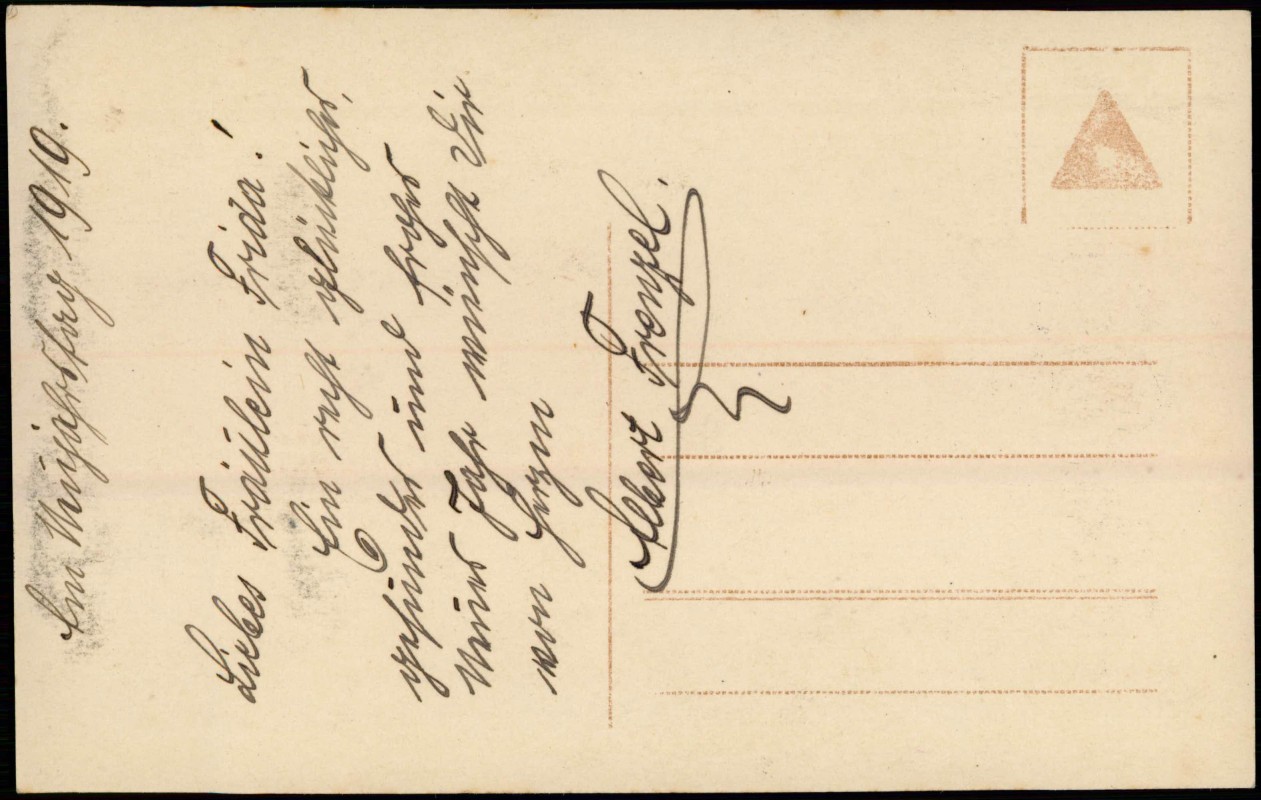 Am Neujahrstag 1919.
Liebes Fräulein Frida!
Ein recht glückliches,
gesundes und frohes
Neues Jahr wünscht Dir
von Herzen
Albert Frenzel.